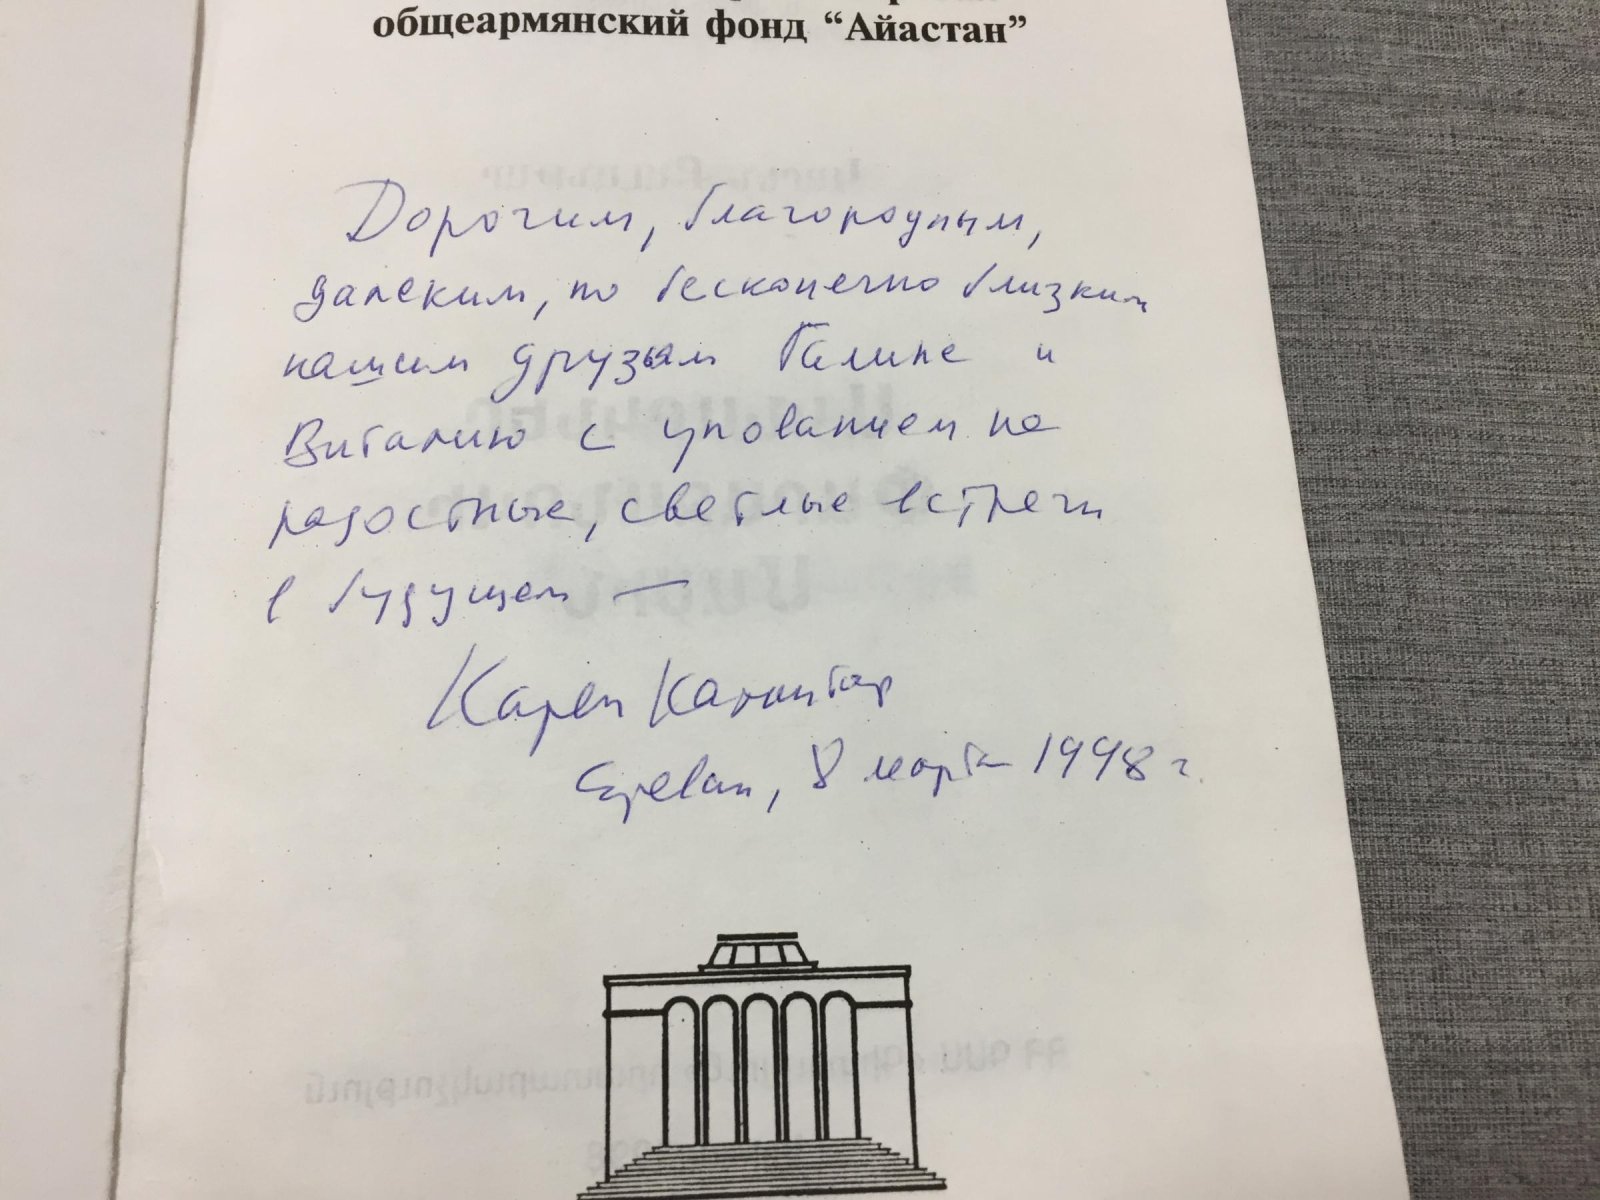 общеармянский фонд “Айастан”
Дорогим, благородным,
далеким, но бесконечно близким
нашим друзьям Галине и
Виталию с упованием на
радостные, светлые встречи
в будущем —
Карен
Ереван, 8 марта 1998 г.